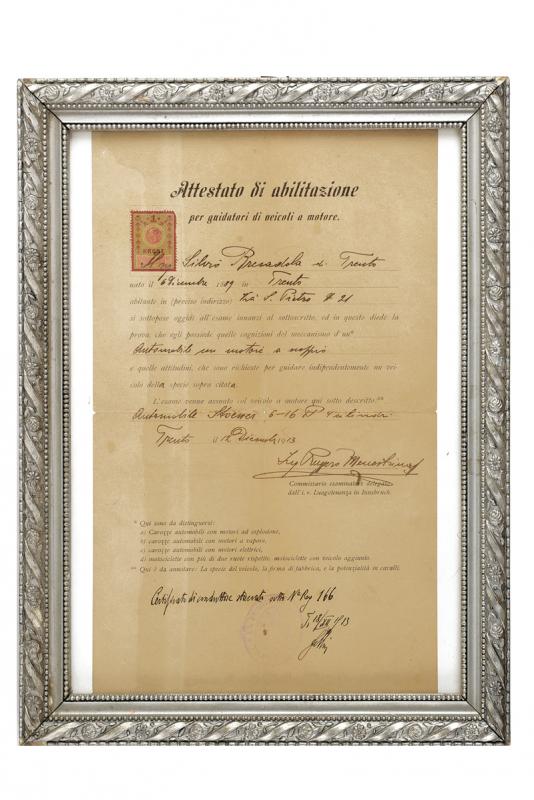 Attestato di abilitazione
per guidatori di veicoli a motore.
1
KRONE
Silvio Bresadola di Trento
nato il 6 Dicembre 1889 in Trento
abitante in (preciso indirizzo) Via S. Pietro # 21
si sottopose oggidì all'esame innanzi al sottoscritto, ed in questo diede la
prova, che egli possiede quelle cognizioni del meccanismo d'un*
Automobile con motore a
e quelle attitudini, che sono richieste per guidare indipendentemente un vei-
colo della specie sopra citata.
L'esame venne assunto col veicolo a motore qui sotto descritto:**
Automobile 6-16 HP 4 cilindri
Trento il 12 Dicembre 1913
Ing Ruggero
Commissario esaminatore delegato
dall'i. r. Luogotenenza in Innsbruck.
* Qui sono da distinguersi:
a) Carozze automobili con motori ad esplosione,
b) carozze automobili con motori a vapore,
c) carozze automobili con motori elettrici,
d) motociclette con più di due ruote rispettiv. motociclette con veicolo aggiunto.
** Qui è da annotare: La specie del veicolo, la firma di fabbrica, e la potenzialità in cavalli.
Certificato di conduttore sotto Nº Reg 166
12/XII 1913